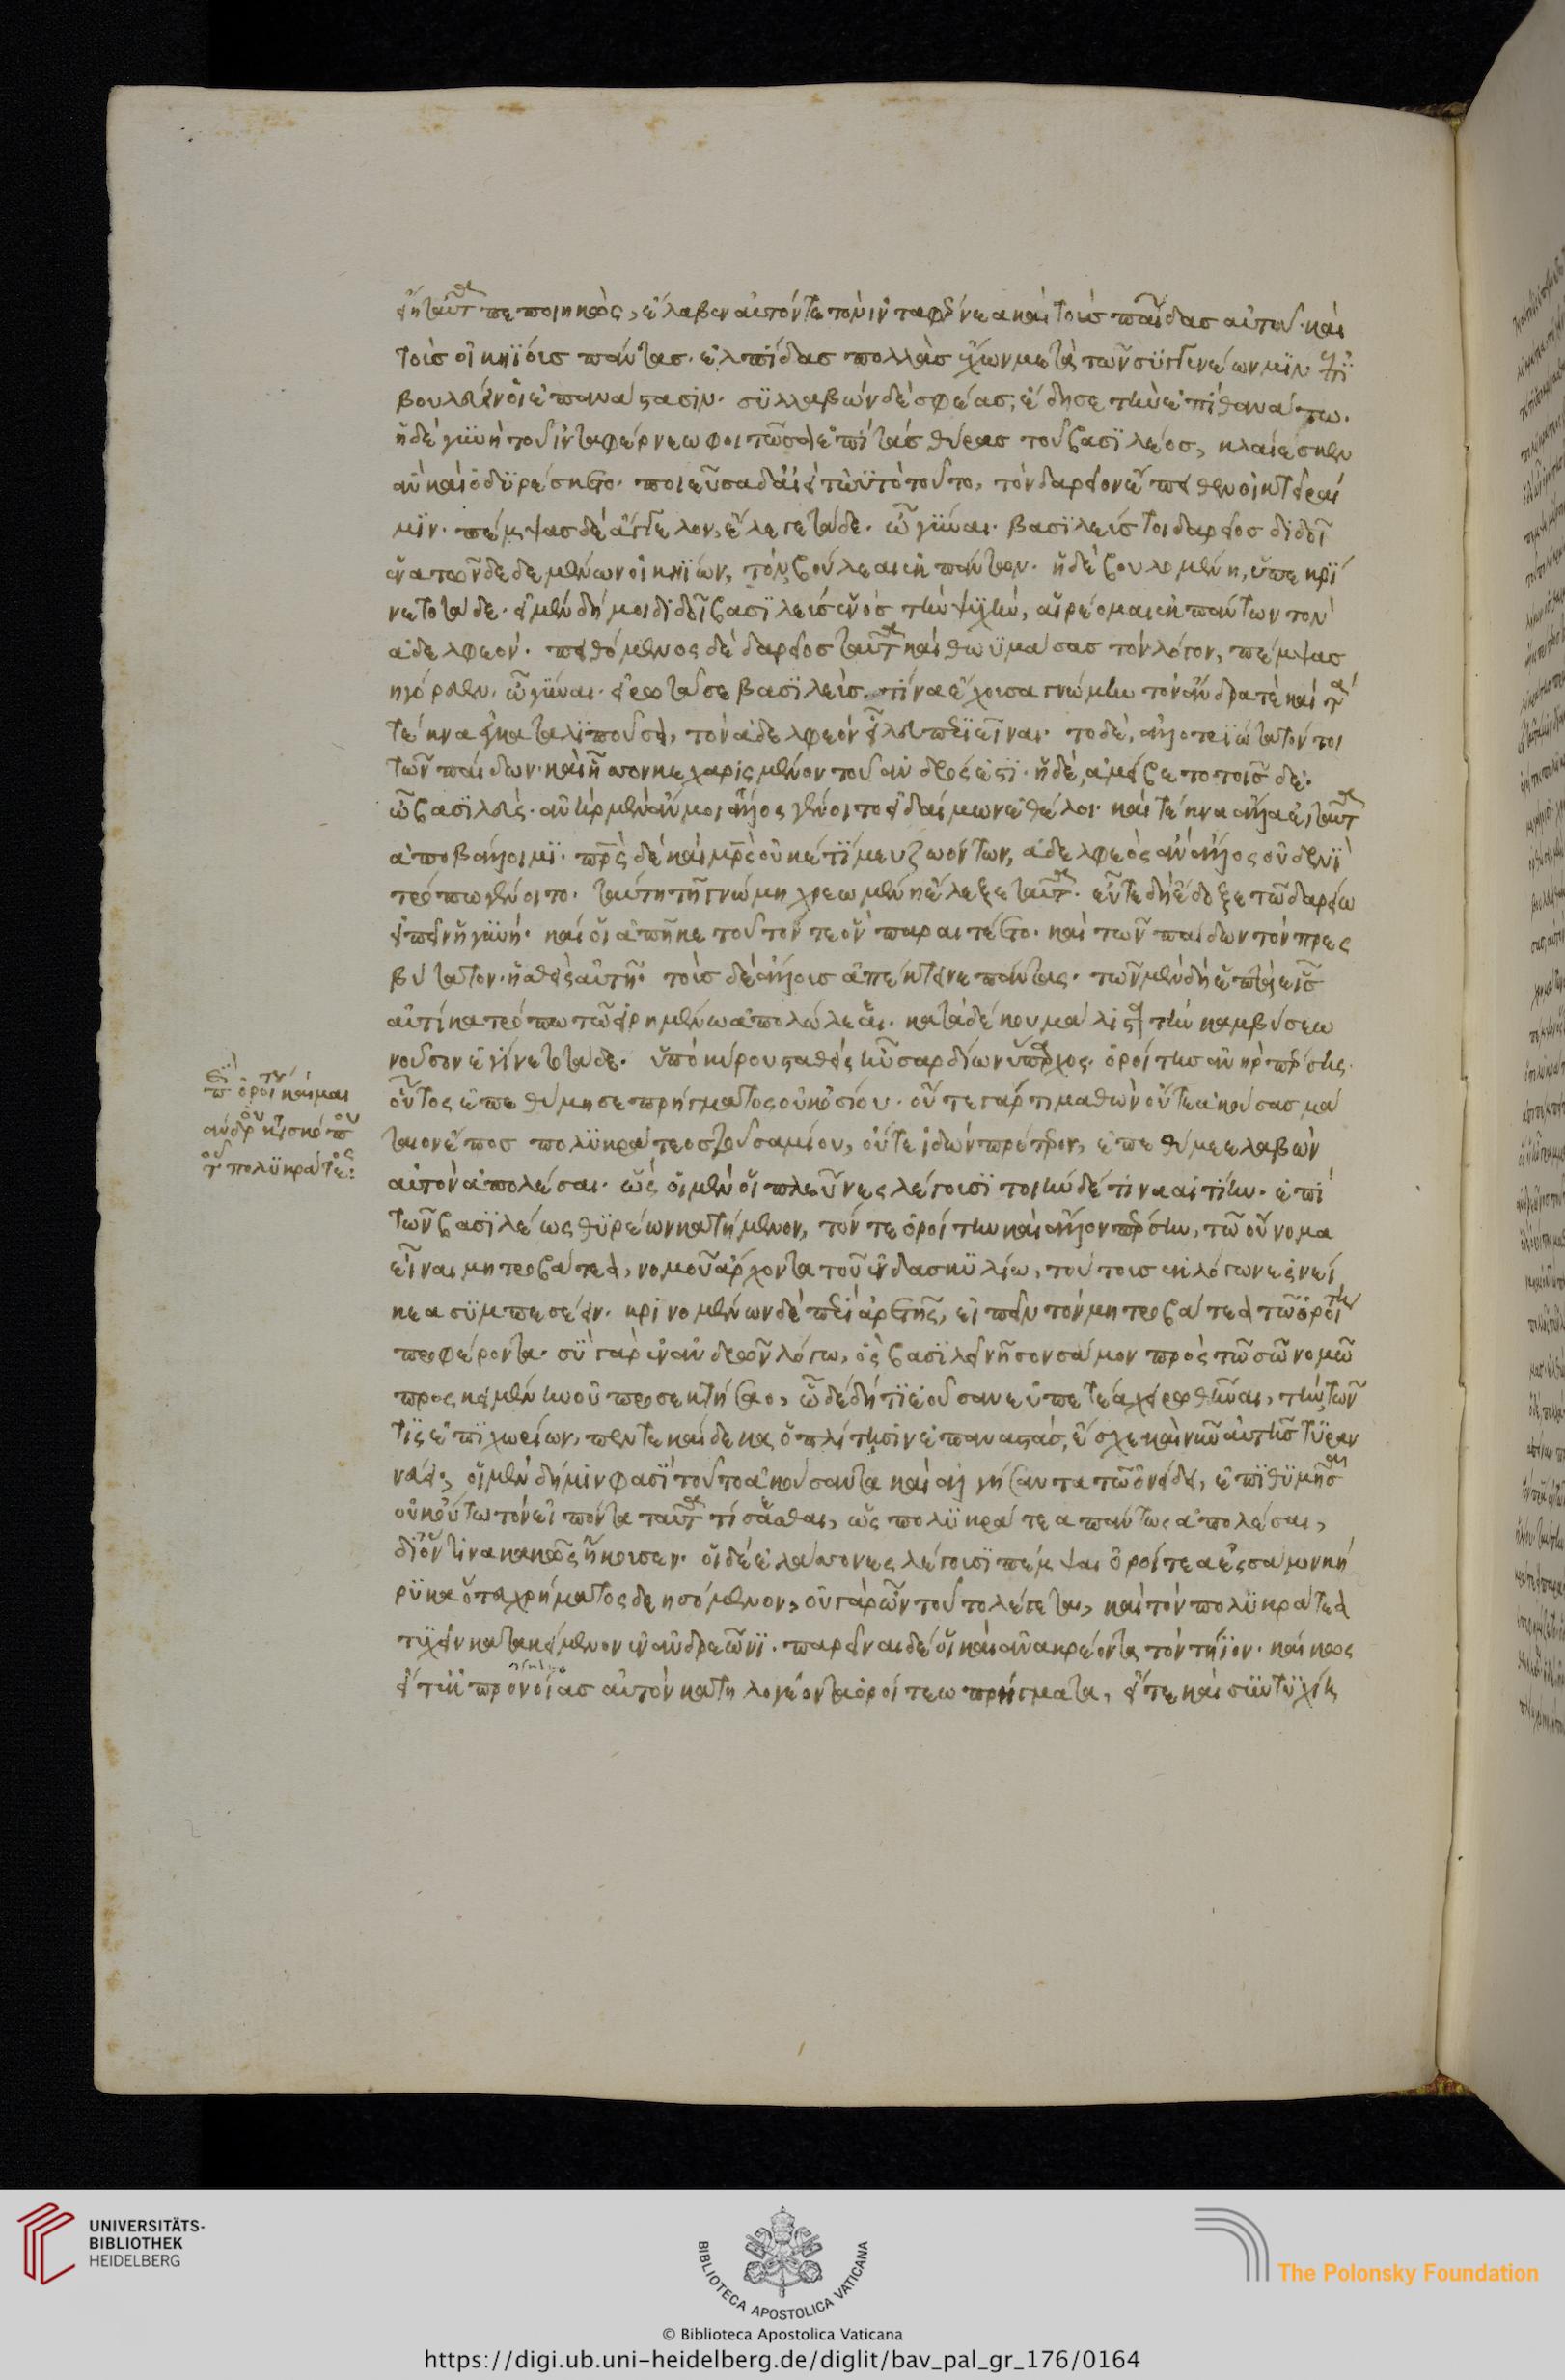 εἴη ταῦτα πεποιηκὼς, ἔλαβεν αὐτόν τε τὸν ἰνταφέρνεα καὶ τοὺς παῖδας αὐτοῦ· καὶ
τοὺς οἰκηΐους πάντας· ἐλπίδας πολλὰς ἔχων μετὰ τῶν συγγενέων μϊν ἐπϊ
βουλεύειν οἱ ἐπανάστασιν· συλλαβὼν δέ σφέας, ἔδησε τὴν ἐπὶ θανάτω.
ἡ δὲ γϋνὴ τοῦ ἰνταφέρνεω φοιτῶσα ἐπὶ τὰς θύρας τοῦ βασϊλέος, κλαίεσκεν
ἂν καὶ ὀδϋρέσκετο· ποιεῦσα δ' ἀεὶ τὠϋτὸ τοῦτο, τὸν δαρεῖον ἔπειθεν οἰκτεῖραί
μϊν· πέμψας δὲ ἄγγελον, ἔλεγε τάδε· ὦ γϋναι· βασϊλεύς τοι δαρεῖος δϊδοῖ
ἕνα τῶνδε δεμένων οἰκηΐων, τὸν βούλεαι ἐκ πάντων· ἡ δὲ βουλομένη, ὑπεκρϊ
νετο τάδε· εἰ μὲν δή μοι δϊδοῖ βασϊλεὺς ἑνὸς τὴν ψϋχὴν, αἱρέομαι ἐκ πάντων τὸν
ἀδελφεόν· πειθόμενος δὲ δαρεῖος ταῦτα καὶ θωϋμάσας τὸν λόγον, πέμψας
ἠγόρευεν· ὦ γϋναι· εἰρωτᾶ σε βασϊλεὺς· τίνα ἔχουσα γνώμην τὸν ἄνδρα τὲ καὶ τὰ
τέκνα ἐγκαταλϊποῦσα, τὸν ἀδελφεὸν εἵλευ περϊεῖναι· τὸ δὲ, ἀλλοτριώτατόν τοι
τῶν παίδων· καὶ ἧσσον κεχαρισμένον τοῦ ἀνδρός ἐστϊ· ἡ δὲ, ἀμείβετο τοῖσδε·
ὦ βασϊλεῦ· ἀνὴρ μὲν ἄν μοι ἄλλος γένοιτο εἰ δαίμων ἐθέλοι· καὶ τέκνα ἄλλα εἰ ταῦτα
ἀποβάλοιμϊ· πατρὸς δὲ καὶ μητρὸς οὐκέτϊ μευ ζωόντων, ἀδελφεὸς ἂν ἄλλος οὐδενὶ
τρόπω γένοιτο· ταύτη τῆ γνώμη χρεωμένη ἔλεξε ταῦτα· εὖ τε δὴ ἔδοξε τῶ δαρείω
εἰπεῖν ἡ γϋνή· καί οἱ ἀπῆκε τοῦτόν τε ὃν παραιτέετο· καὶ τῶν παίδων τὸν πρεσ
βύτατον· ἡσθεὶς αὐτῆ· τοὺς δὲ ἄλλους ἀπέκτεινε πάντας· τῶν μὲν δὴ ἑπτὰ εἷς
αὐτίκα τρόπω τῶ εἰρημένω ἀπολώλεε· κατὰ δέ κου μάλιστα τὴν καμβύσεω
νοῦσον ἐγίνετο τάδε· ὑπὸ κύρου σταθεὶς ἦν σαρδίων ὕπαρχος· ὀροίτης ἀνὴρ πέρσης·
οὗτος ἐπεθύμησε πρήγματος οὐχ ὁσίου· οὔτε γάρ τι μαθὼν οὔτε ἀκούσας μά
ταιον ἔπος πολϋκράτεος τοῦ σαμίου, οὔτε ἰδὼν πρότερον, ἐπεθύμεε λαβὼν
αὐτὸν ἀπολέσαι· ὡς οἱ μὲν οἱ πλεῦνες λέγουσϊ τοιήνδέ τινα αἰτίην· ἐπὶ
τῶν βασϊλέως θϋρέων κατήμενον, τόν τε ὀροίτην καὶ ἄλλον πέρσην, τῶ οὔνομα
εἶναι μητροβάτεα, νομοῦ ἄρχοντα τοῦ ἐν δασκϋλίω, τούτους ἐκ λόγων ἐς νεί
κεα σϋμπεσέειν· κρϊνομένων δὲ περὶ ἀρετῆς, εἰπεῖν τὸν μητροβάτεα τῶ ὀροίτη
προφέροντα· σὺ γὰρ ἐν ἀνδρῶν λόγω, ὃς βασϊλεῖ νῆσον σάμον πρὸς τῶ σῶ νομῶ
προσκειμένην οὐ προσεκτήσαο, ὧδε δή τϊ ἐοῦσαν εὐπετέα χειρωθῆναι, τὴν τῶν
τϊς ἐπϊχωρίων, πεντεκαίδεκα ὁπλίτησιν ἐπαναστὰς, ἔσχε καὶ νῦν αὐτῆς τϋραν
νεύει· οἱ μὲν δή μιν φασϊ τοῦτο ἀκούσαντα καὶ ἀλγήσαντα τῶ ὀνείδει, ἐπϊθϋμῆσαι
οὐκ οὕτω τὸν εἰπόντα ταῦτα τίσασθαι, ὡς πολϋκράτεα πάντως ἀπολέσαι,
δι' ὅντινα κακῶς ἤκουσεν· οἱ δὲ ἐλάσσονες λέγουσϊ πέμψαι ὀροίτεα ἐς σάμον κή
ρϋκα ὅτευ χρήματος δεησόμενον, οὐ γὰρ ὦν τοῦτο λέγεται, καὶ τὸν πολϋκράτεα
τϋχεῖν κατακείμενον ἐν ἀνδρεῶνϊ· παρεῖναι δέ οἱ καὶ ἀνακρέοντα τὸν τήϊον· καί κως
εἴτ' ἐκ προνοίας αὐτὸν κατηλογέοντα ὀροίτεω πρήγματα, εἴτε καὶ σϋντϋχίη
UNIVERSITÄTS-
BIBLIOTHEK
HEIDELBERG
BIBLIOTECA APOSTOLICA VATICANA
The Polonsky Foundation
© Biblioteca Apostolica Vaticana
https://digi.ub.uni-heidelberg.de/diglit/bav_pal_gr_176/0164